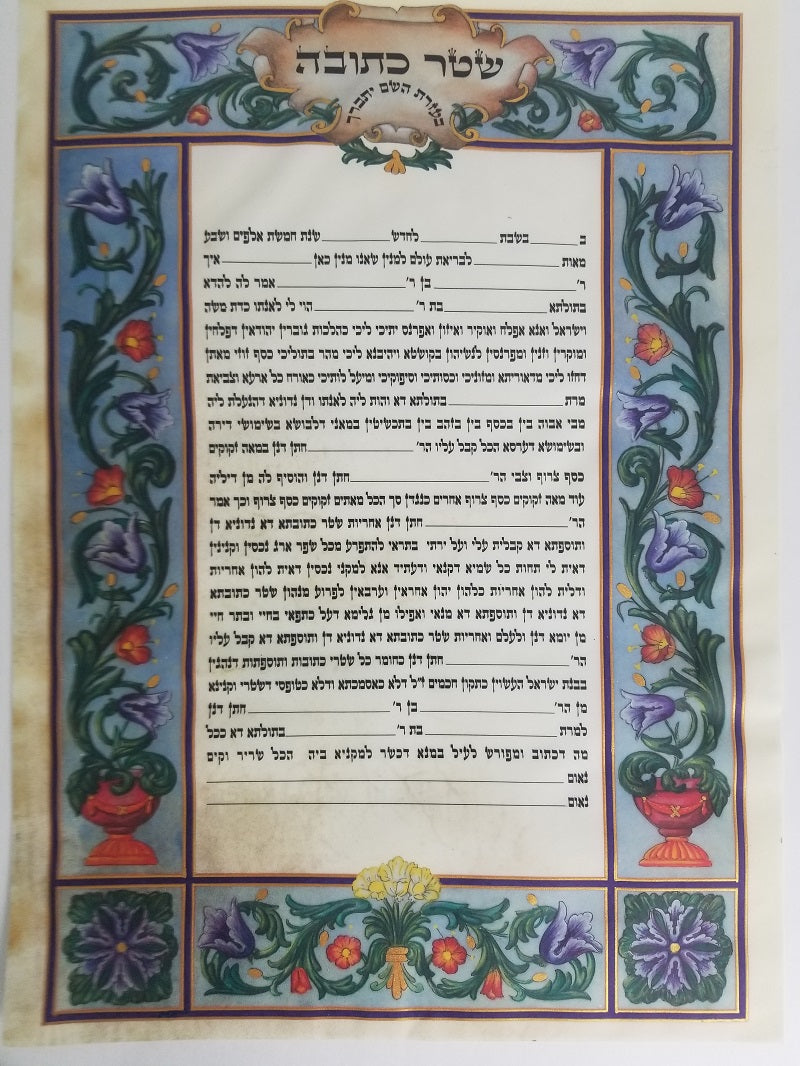 שטר כתובה
בעזרת השם יתברך
ב______בשבת________לחדש________שנת חמשת אלפים ושבע
מאות____________לבריאת עולם למנין שאנו מנין כאן____________איך
ר'____________בן ר'____________אמר לה להדא
בתולתא____________בת ר'____________הוי לי לאנתו כדת משה
וישראל ואנא אפלח ואוקיר ואיזון ואפרנס יתיכי ליכי כהלכות גוברין יהודאין דפלחין
ומוקרין וזנין ומפרנסין לנשיהון בקושטא ויהיבנא ליכי מהר בתוליכי כסף זוזי מאתן
דחזו ליכי מדאוריתא ומזוניכי וכסותיכי וסיפוקיכי ומיעל לותיכי כאורח כל ארעא וצביאת
מרת____________בתולתא דא והות ליה לאנתו ודן נדוניא דהנעלת ליה
מבי אבוה בין בכסף בין בזהב בין בתכשיטין במאני דלבושא בשימושי דירה
ובשימושא דערסא הכל קבל עליו הר'____________חתן דנן במאה זקוקים
כסף צרוף וצבי הר'____________חתן דנן והוסיף לה מן דיליה
עוד מאה זקוקים כסף צרוף אחרים כנגדן סך הכל מאתים זקוקים כסף צרוף וכך אמר
הר'____________חתן דנן אחריות שטר כתובתא דא נדוניא דן
ותוספתא דא קבלית עלי ועל ירתי בתראי להתפרע מכל שפר ארג נכסין וקנינין
דאית לי תחות כל שמיא דקנאי ודעתיד אנא למקני נכסין דאית להון אחריות
ודלית להון אחריות כלהון יהון אחראין וערבאין לפרוע מנהון שטר כתובתא
דא נדוניא דן ותוספתא דא מנאי ואפילו מן גלימא דעל כתפאי בחיי ובתר חיי
מן יומא דנן ולעלם ואחריות שטר כתובתא דא נדוניא דן ותוספתא דא קבל עליו
הר'____________חתן דנן כחומר כל שטרי כתובות ותוספתות דנהגין
בבנת ישראל העשוין כתקון חכמים ז"ל דלא כאסמכתא ודלא כטופסי דשטרי וקנינא
מן הר'____________בן ר'____________חתן דנן
למרת____________בת ר'____________בתולתא דא ככל
מה דכתוב ומפורש לעיל במנא דכשר למקניא ביה הכל שריר וקים
נאום____________
נאום____________